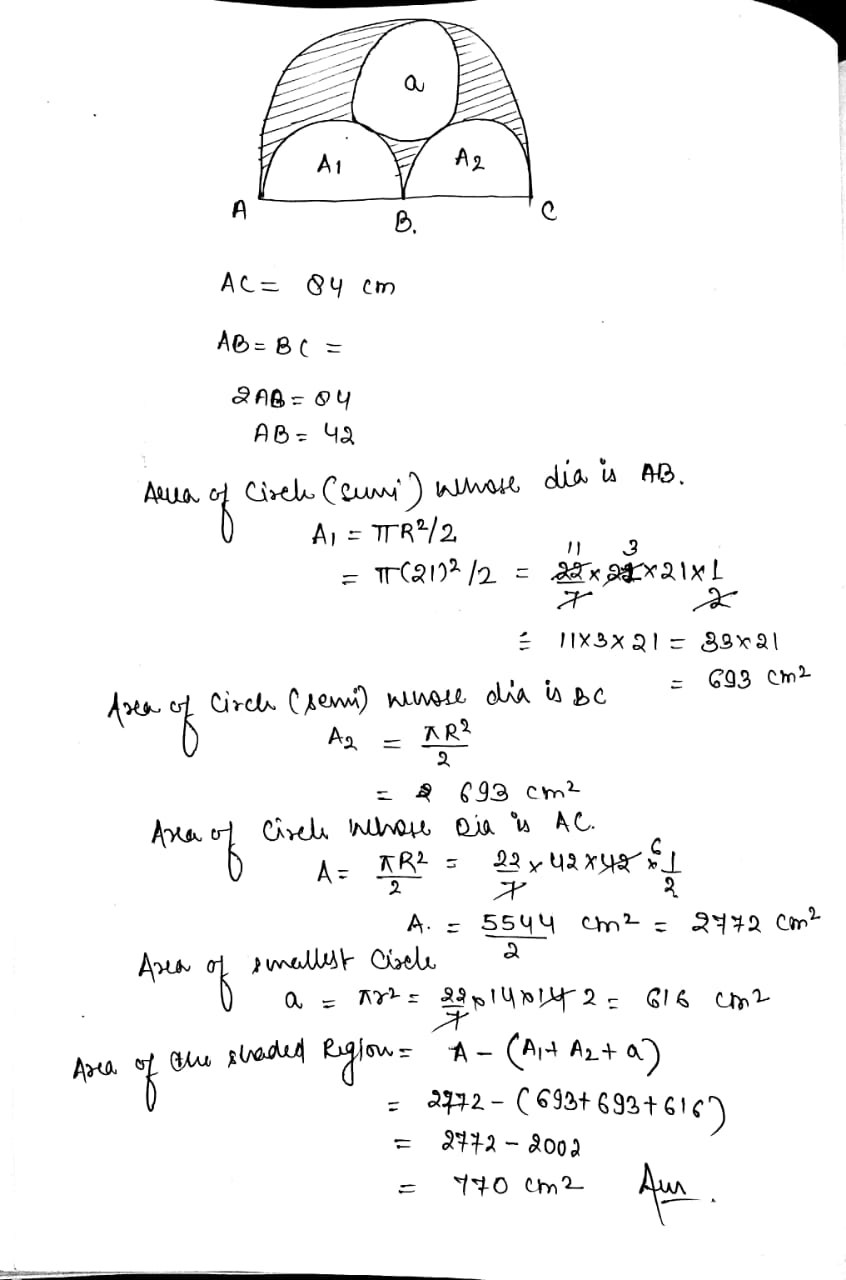 a
A1 A2
A B. C
AC = 84 cm
AB = BC =
2AB = 84
AB = 42
Area of Circle (semi) whose dia is AB.
A1 = πR²/2
= π(21)²/2 = 22/7 × 21 × 21 × 1/2
11 3
= 11×3×21 = 33×21
= 693 cm²
Area of Circle (semi) whose dia is BC
A2 = πR²/2
= 693 cm²
Area of Circle whose Dia is AC.
A = πR²/2 = 22/7 × 42 × 42 6 × 1/2
A. = 5544/2 cm² = 2772 cm²
Area of smallest Circle
a = πr² = 22/7 × 14 × 14 2 = 616 cm²
Area of the shaded Region = A - (A1 + A2 + a)
= 2772 - (693 + 693 + 616)
= 2772 - 2002
= 770 cm² Ans.